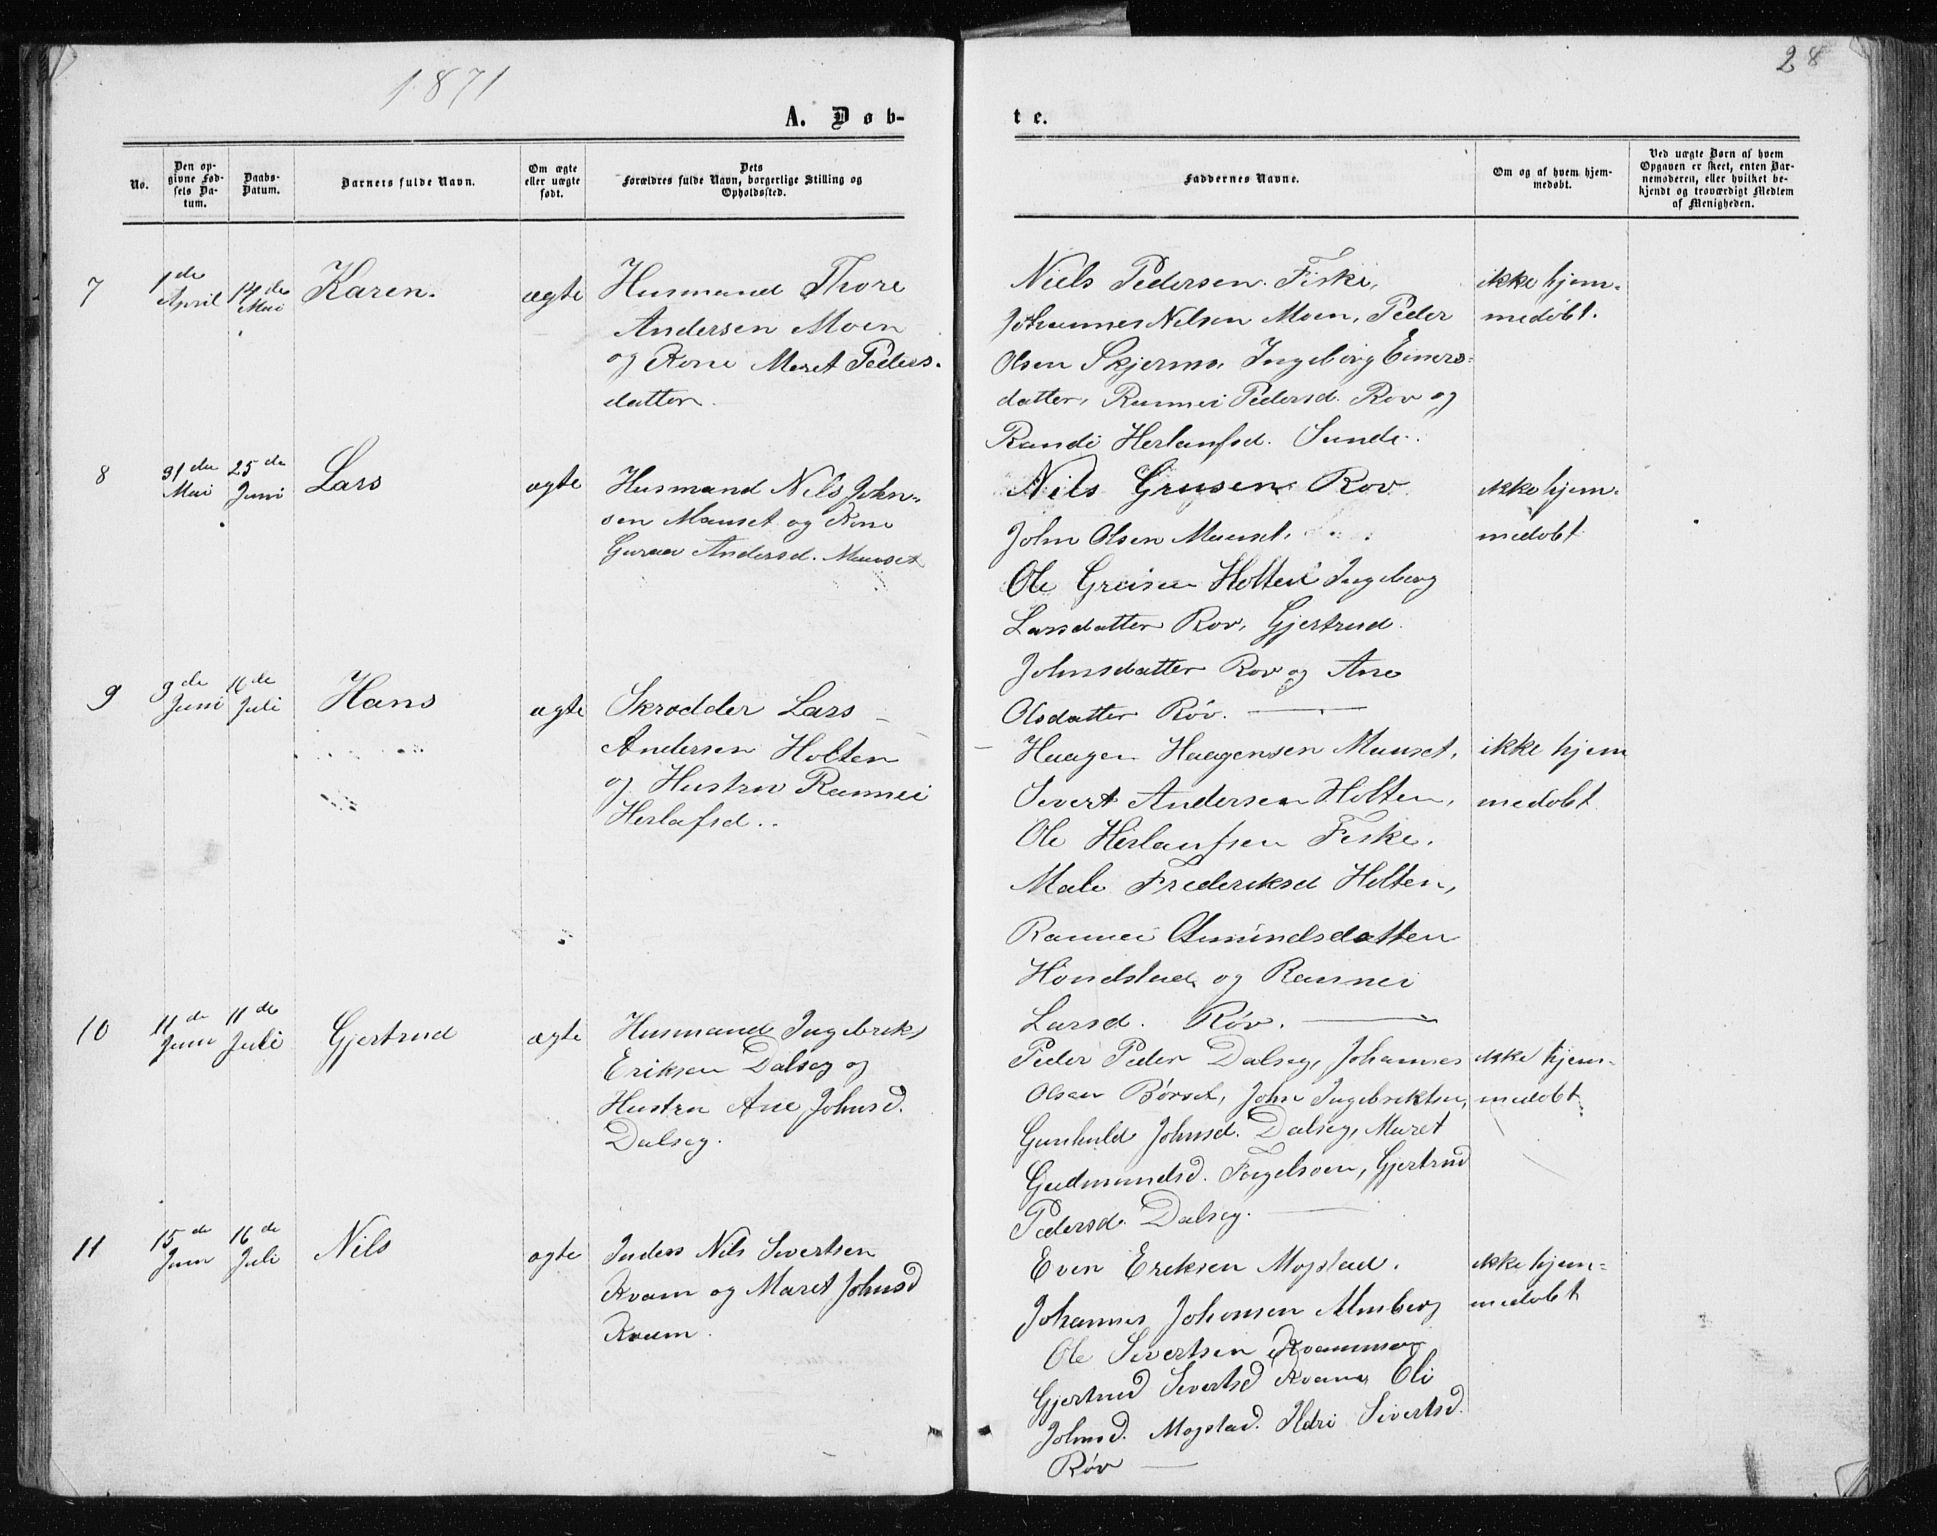 1871
28
A. Døb-
te.
No.
Den op-
givne Fød-
sels Da-
tum.
Daabs-
Datum.
Barnets fulde Navn.
Om ægte
eller uægte
født.
Dets
Forældres fulde Navn, borgerlige Stilling og
Opholdssted.
Faddernes Navne.
Om og af hvem hjem-
medøbt.
Ved uægte Børn af hvem
Opgaven er skeet, enten Bar-
nemoderen, eller hvilket be-
kjendt og troværdigt Medlem
af Menigheden.
7
1de
April
14de
Mai
Karen.
ægte
Husmand Thore
Andersen Moen
og Kone Maret Peders-
datter.
Niels Pedersen Fiske,
Johannes Nilsen Moen, Peder
Olsen Skjermo, Ingeborg Einers-
datter, Rannei Pedersd. Rov og
Randi Herlaufsd. Sunde.
ikke hjem-
medøbt.
8
31de
Mai
25de
Juni
Lars
ægte
Husmand Nils John-
sen Mauset og Kone
Guraa Andersd. Mauset
Nils Grusen Rov
John Olsen Mauset,
Ole Greisen Holten Ingeborg
Larsdatter Rov, Gjertrud
Johnsdatter Rov og Ane
Olsdatter Røv.
ikke hjem-
medøbt
9
9de
Juni
16de
Juli
Hans
ægte
Skrædder Lars
Andersen Holten
og Hustru Rannei
Herlafsd.
Haagen Haagensen Mauset,
Sivert Andersen Holten,
Ole Herlaufsen Fiske.
Male Frederiksd Holten,
Rannei Amundsdatter
Honstad og Rannei
Larsd. Røv.
ikke hjem
medøbt
10
11de
Juni
11de
Juli
Gjertrud
ægte
Husmand Ingebrikt
Eriksen Dalseg og
Hustru Ane Johnsd.
Dalseg.
Peder Peder Dalseg, Johannes
Olsen Børset, John Ingebriktsen,
Gunhild Johnsd. Dalseg, Maret
Gudmundsd. Fugelsoen, Gjertrud
Pedersd. Dalseg.
ikke hjem-
medøbt
11
15de
Juni
16de
Juli
Nils
ægte
Inders Nils Sivertsen
Kvam og Maret Johnsd
Kvam.
Even Eriksen Mogstad.
Johannes Johansen Almberg
Ole Sivertsen Kvammen
Gjertrud Sivertsd Kvam, Eli
Johnsd. Mogstad. Ildri Sivertsd.
Røv
ikke hjem-
medøbt